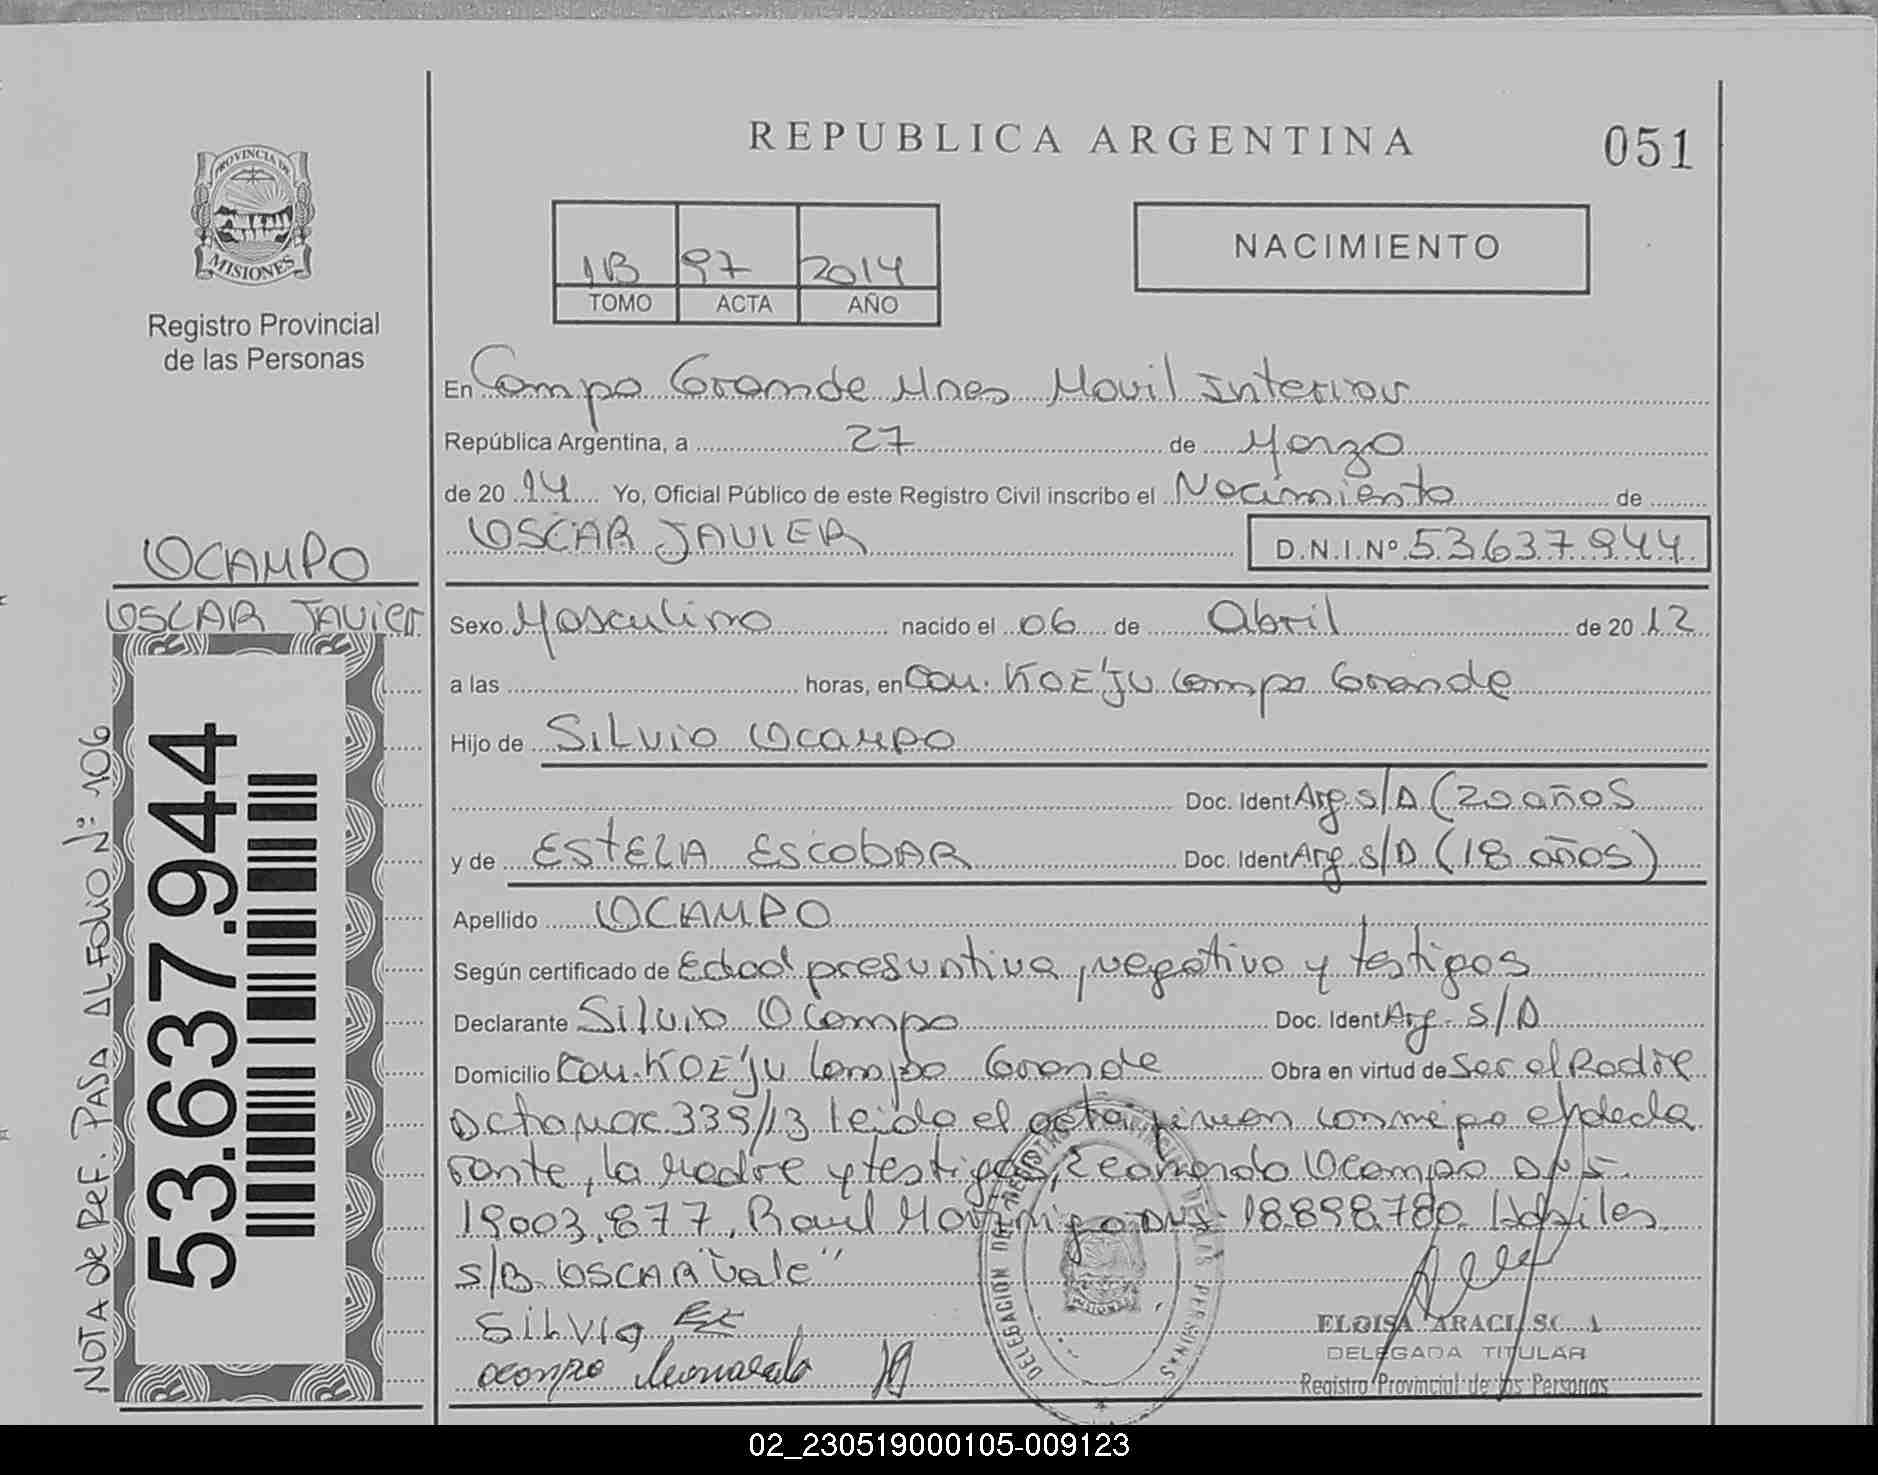 REPUBLICA ARGENTINA
051
PROVINCIA DE
MISIONES
Registro Provincial
de las Personas
1B 97 2014
TOMO ACTA AÑO
NACIMIENTO
En Campo Grande Mnes Movil Interior
República Argentina, a 27 de Marzo
de 20 14 Yo, Oficial Público de este Registro Civil inscribo el Nacimiento de
OSCAR JAVIER
D.N.I.Nº 53637944
OCAMPO
OSCAR JAVIER
NOTA de REF. PASA AL FOLIO Nº 106
53.637.944
Sexo Masculino nacido el 06 de Abril de 20 12
a las horas, en Com. KOE'JU Campo Grande
Hijo de SILVIO OCAMPO
Doc. Ident Arg. S/D (20 años
y de ESTELA ESCOBAR Doc. Ident Arg. S/D (18 años)
Apellido OCAMPO
Según certificado de Edad presuntiva, negativo y testigos
Declarante Silvio Ocampo Doc. Ident Arg. S/D
Domicilio Com. KOE'JU Campo Grande Obra en virtud de Ser el Padre
339/13 leido el acta firman conmigo el decla
rante, la Madre y testigos, Leonardo Ocampo DNI
19003.877, Raul DNI 18898780 Habiles
S/B OSCAR "Vale"
SILVIO
ocampo leonardo
DELEGACION DEL REGISTRO PROVINCIAL DE LAS PERSONAS
ELOISA ARACI
DELEGADA TITULAR
Registro Provincial de las Personas
02_230519000105-009123